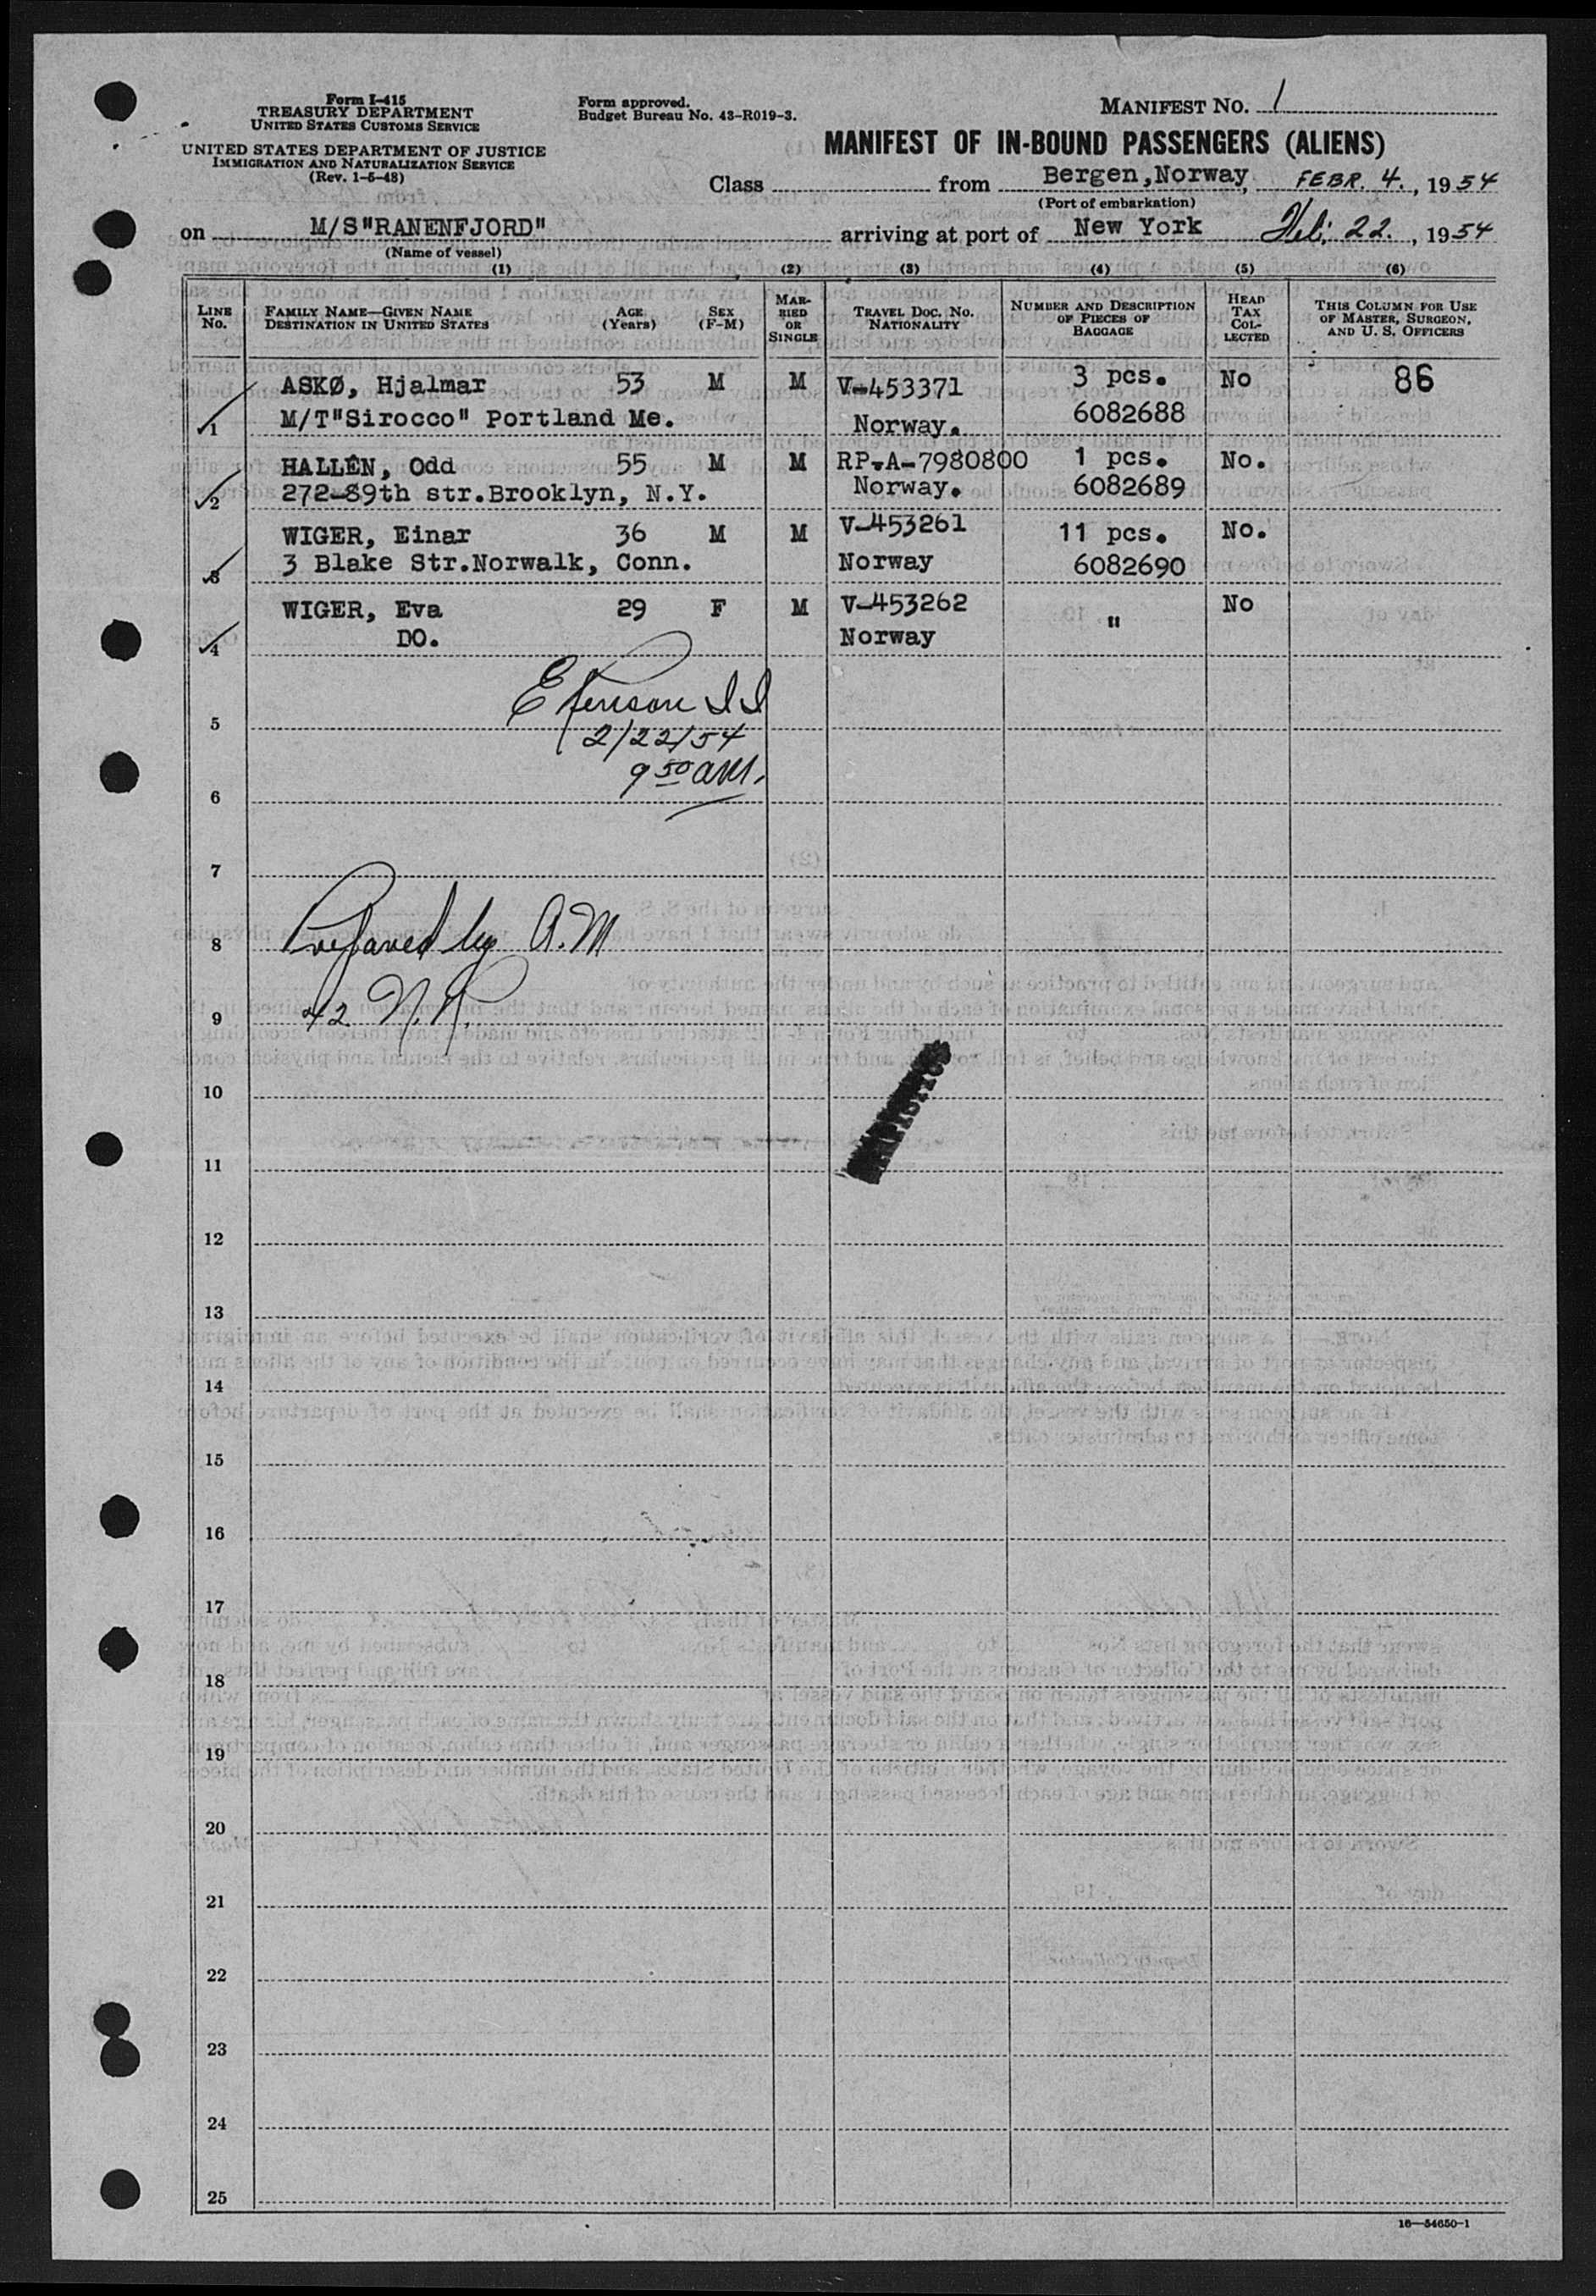 Form I-415
TREASURY DEPARTMENT
UNITED STATES CUSTOMS SERVICE
UNITED STATES DEPARTMENT OF JUSTICE
IMMIGRATION AND NATURALIZATION SERVICE
(Rev. 1-5-48)
Form approved.
Budget Bureau No. 43-R019-3.
MANIFEST NO. 1
MANIFEST OF IN-BOUND PASSENGERS (ALIENS)
Class from Bergen,Norway, FEBR. 4., 1954
(Port of embarkation)
on M/S"RANENFJORD" arriving at port of New York Feb. 22., 1954
(Name of vessel)
(1) (2) (3) (4) (5) (6)
LINE No. FAMILY NAME—GIVEN NAME DESTINATION IN UNITED STATES AGE (Years) SEX (F-M) MARRIED OR SINGLE TRAVEL DOC. NO. NATIONALITY NUMBER AND DESCRIPTION OF PIECES OF BAGGAGE HEAD TAX COLLECTED THIS COLUMN FOR USE OF MASTER, SURGEON, AND U. S. OFFICERS
ASKØ, Hjalmar 53 M M V-453371 3 pcs. No 86
1 M/T"Sirocco" Portland Me. Norway. 6082688
HALLÉN, Odd 55 M M RP.A-7980800 1 pcs. No.
2 272-89th str.Brooklyn, N.Y. Norway. 6082689
WIGER, Einar 36 M M V-453261 11 pcs. No.
3 3 Blake Str.Norwalk, Conn. Norway 6082690
WIGER, Eva 29 F M V-453262 " No
4 DO. Norway
5
2/22/54
9 50 AM.
6
7
8 Prepared by A.M
9 42 N.R.
10
11
12
13
14
15
16
17
18
19
20
21
22
23
24
25
16—54650-1